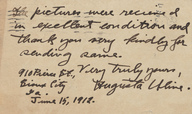 pictures were received
in excellent condition and
thank you very kindly for
sending same.
Very truly yours,
910 Pierce St.,
Sioux City
Ia.
June 15, 1912.
Augusta